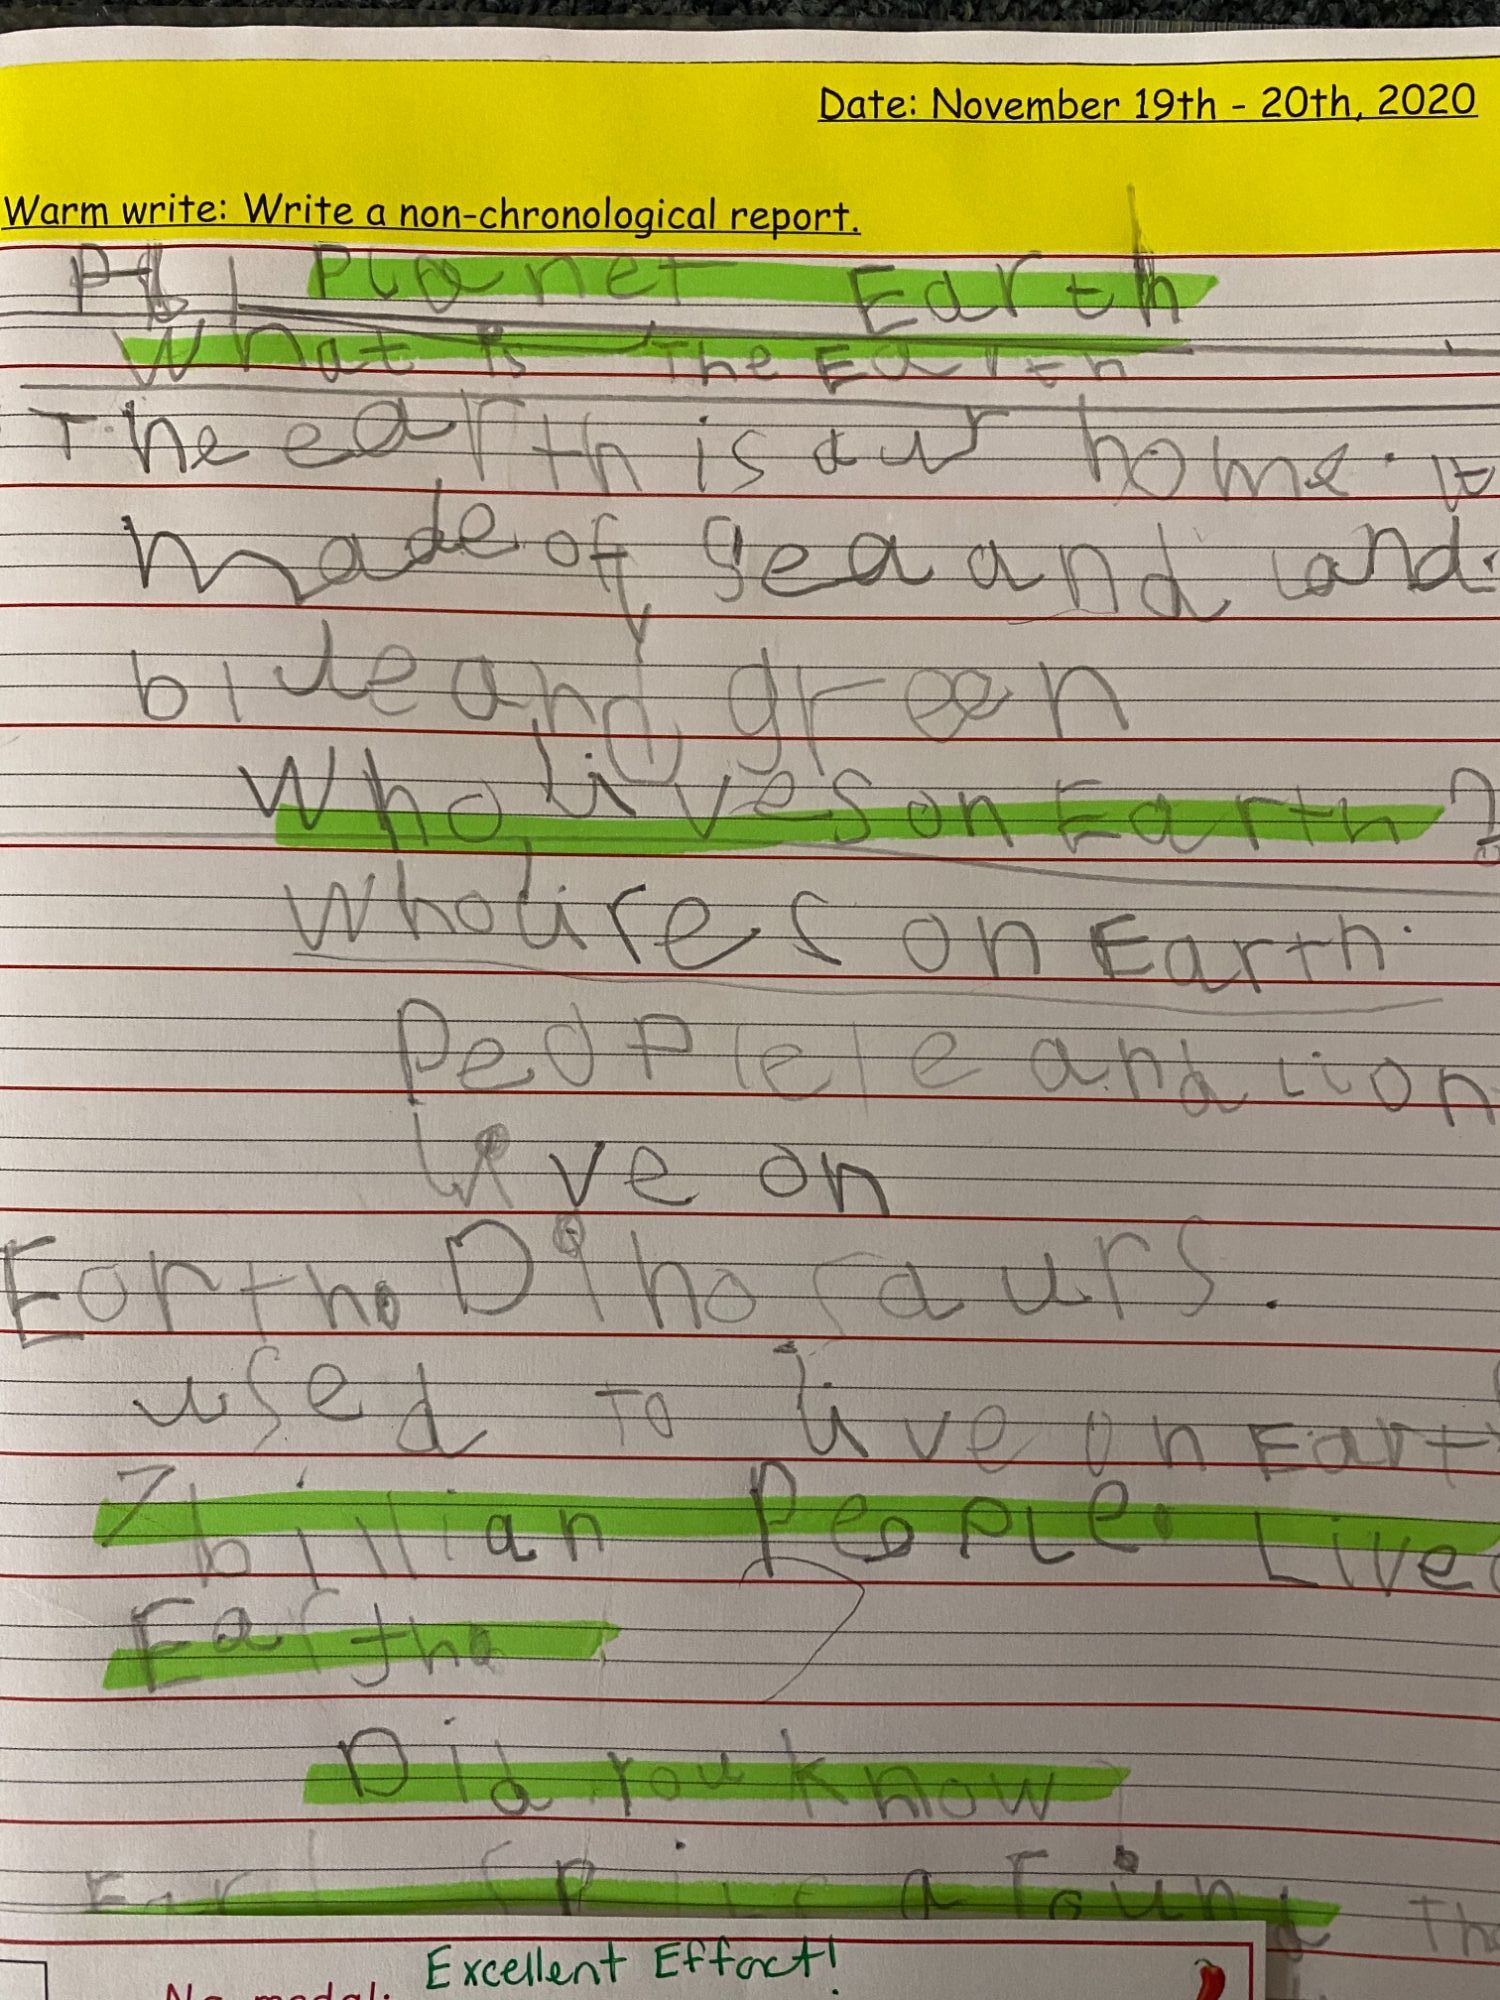 Date: November 19th - 20th, 2020
Warm write: Write a non-chronological report.
Planet Earth
What is The Earth
The earth is aur home. It
made of sea and land.
blue and green
Who lives on Earth?
Who lives on Earth.
Peoplele and lion
live on
Earth. Dinosaurs.
used To live on Eart
7 billian People Live
Earth
Did you know
Ear spins around The
Excellent Effort!
No medal: